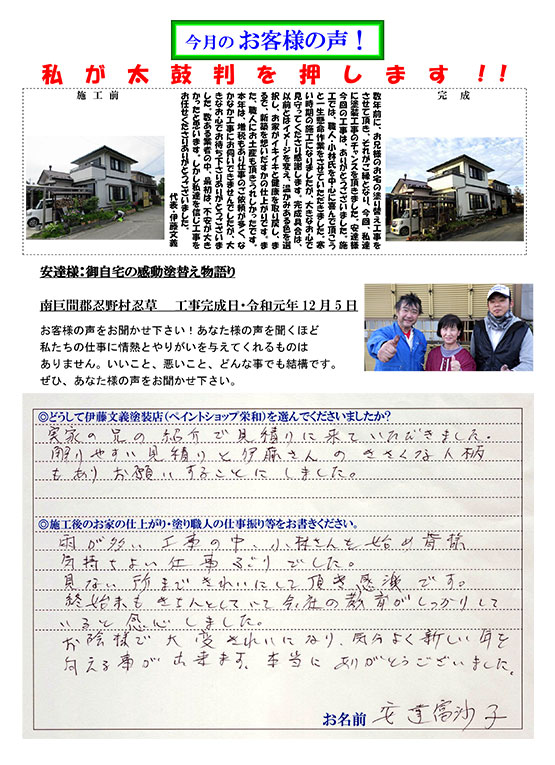 今月の お客様の声！
私が太鼓判を押します!!
施工前
完成
数年前に、お兄様のお宅の塗り替え工事を
させて頂き、それがご縁となり、今回、私達
に塗装工事のチャンスを頂きました。安達様
今回の工事は、ありがとうございました。施
工では、職人・小林氏を中心に喜んで頂こう
と一生懸命作業をさせていただきました。寒
い時期の施工になりましたが、大きなお心で
見守ってくださり感謝します。完成具合は、
以前とはイメージを変え、温かみある色を選
択し、お家がイキイキと健康を取り戻し、ま
るで、新築を思いだすかの仕上がりです。ま
た、職人にお土産も頂きうれしかったです。
本年は、増税もあり工事のご依頼が多く、な
かなか工事にお伺いできませんでしたが、大
きなお心でお待ち下さりありがとうございま
した。数ある業者の中、最初は、不安が大き
かったと思います。しかし私達を信じ工事を
お任せくださりありがとうございました。
代表・伊藤文義
安達様：御自宅の感動塗替え物語り
南巨間郡忍野村忍草 工事完成日・令和元年12月5日
お客様の声をお聞かせ下さい！あなた様の声を聞くほど
私たちの仕事に情熱とやりがいを与えてくれるものは
ありません。いいこと、悪いこと、どんな事でも結構です。
ぜひ、あなた様の声をお聞かせ下さい。
◎どうして伊藤文義塗装店（ペイントショップ栄和）を選んでくださいましたか？
実家の兄の紹介で見積りに来ていただきました。
解りやすい見積りと伊藤さんのきさくな人柄
もありお願いすることにしました。
◎施工後のお家の仕上がり・塗り職人の仕事振り等をお書きください。
雨が多い工事の中、小林さんを始め皆様
気持ちよい仕事ぶりでした。
見ない所まできれいにして頂き感激です。
終始末もきちんとしていて会社の教育がしっかりして
いると感心しました。
お陰様で大変きれいになり、気分よく新しい年を
迎える事が出来ます。本当にありがとうございました。
お名前 安達富沙子